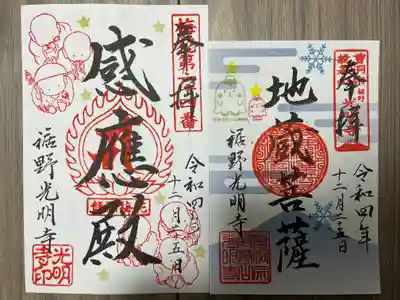 奉拝
令和四年
十二月二五日
感應殿
裾野光明寺
光明寺印
奉拝
令和四年
十二月二五日
地蔵菩薩
裾野光明寺